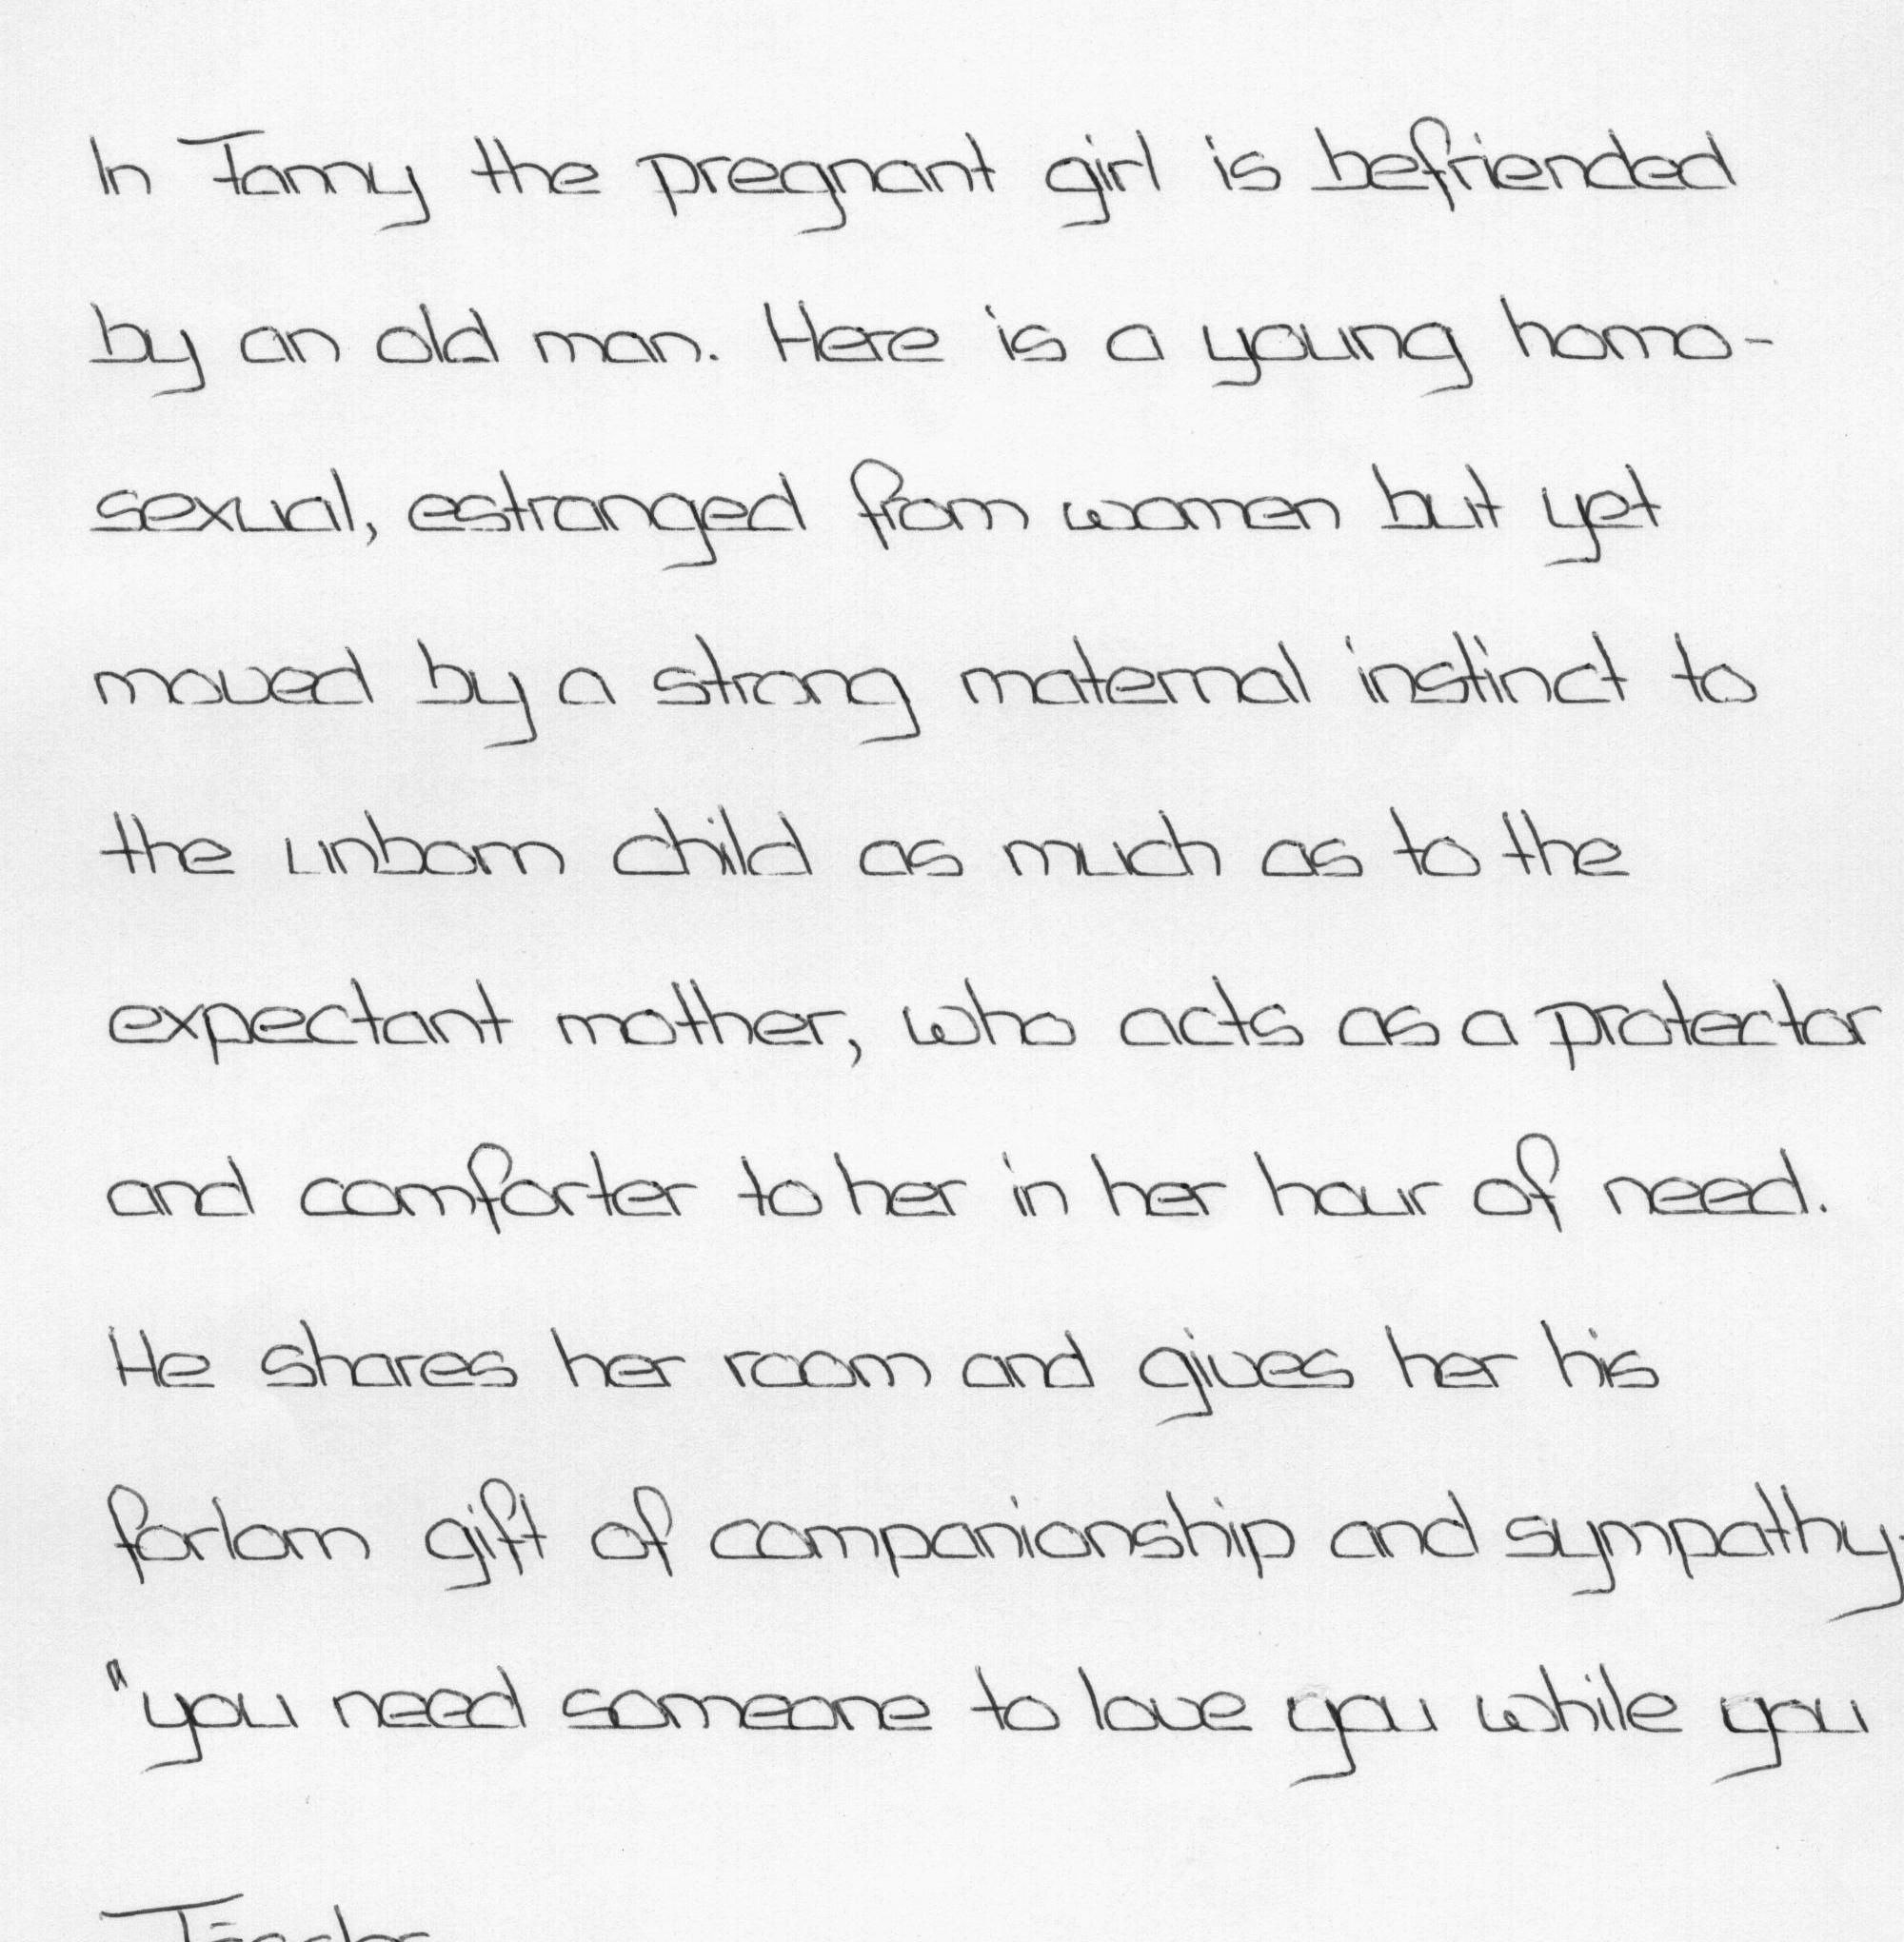 In Fanny the pregnant girl is befriended
by an old man. Here is a young homo-
sexual, estranged from women but yet
moved by a strong maternal instinct to
the unborn child as much as to the
expectant mother, who acts as a protector
and comforter to her in her hour of need.
He shares her room and gives her his
forlorn gift of companionship and sympathy.
"you need someone to love you while you